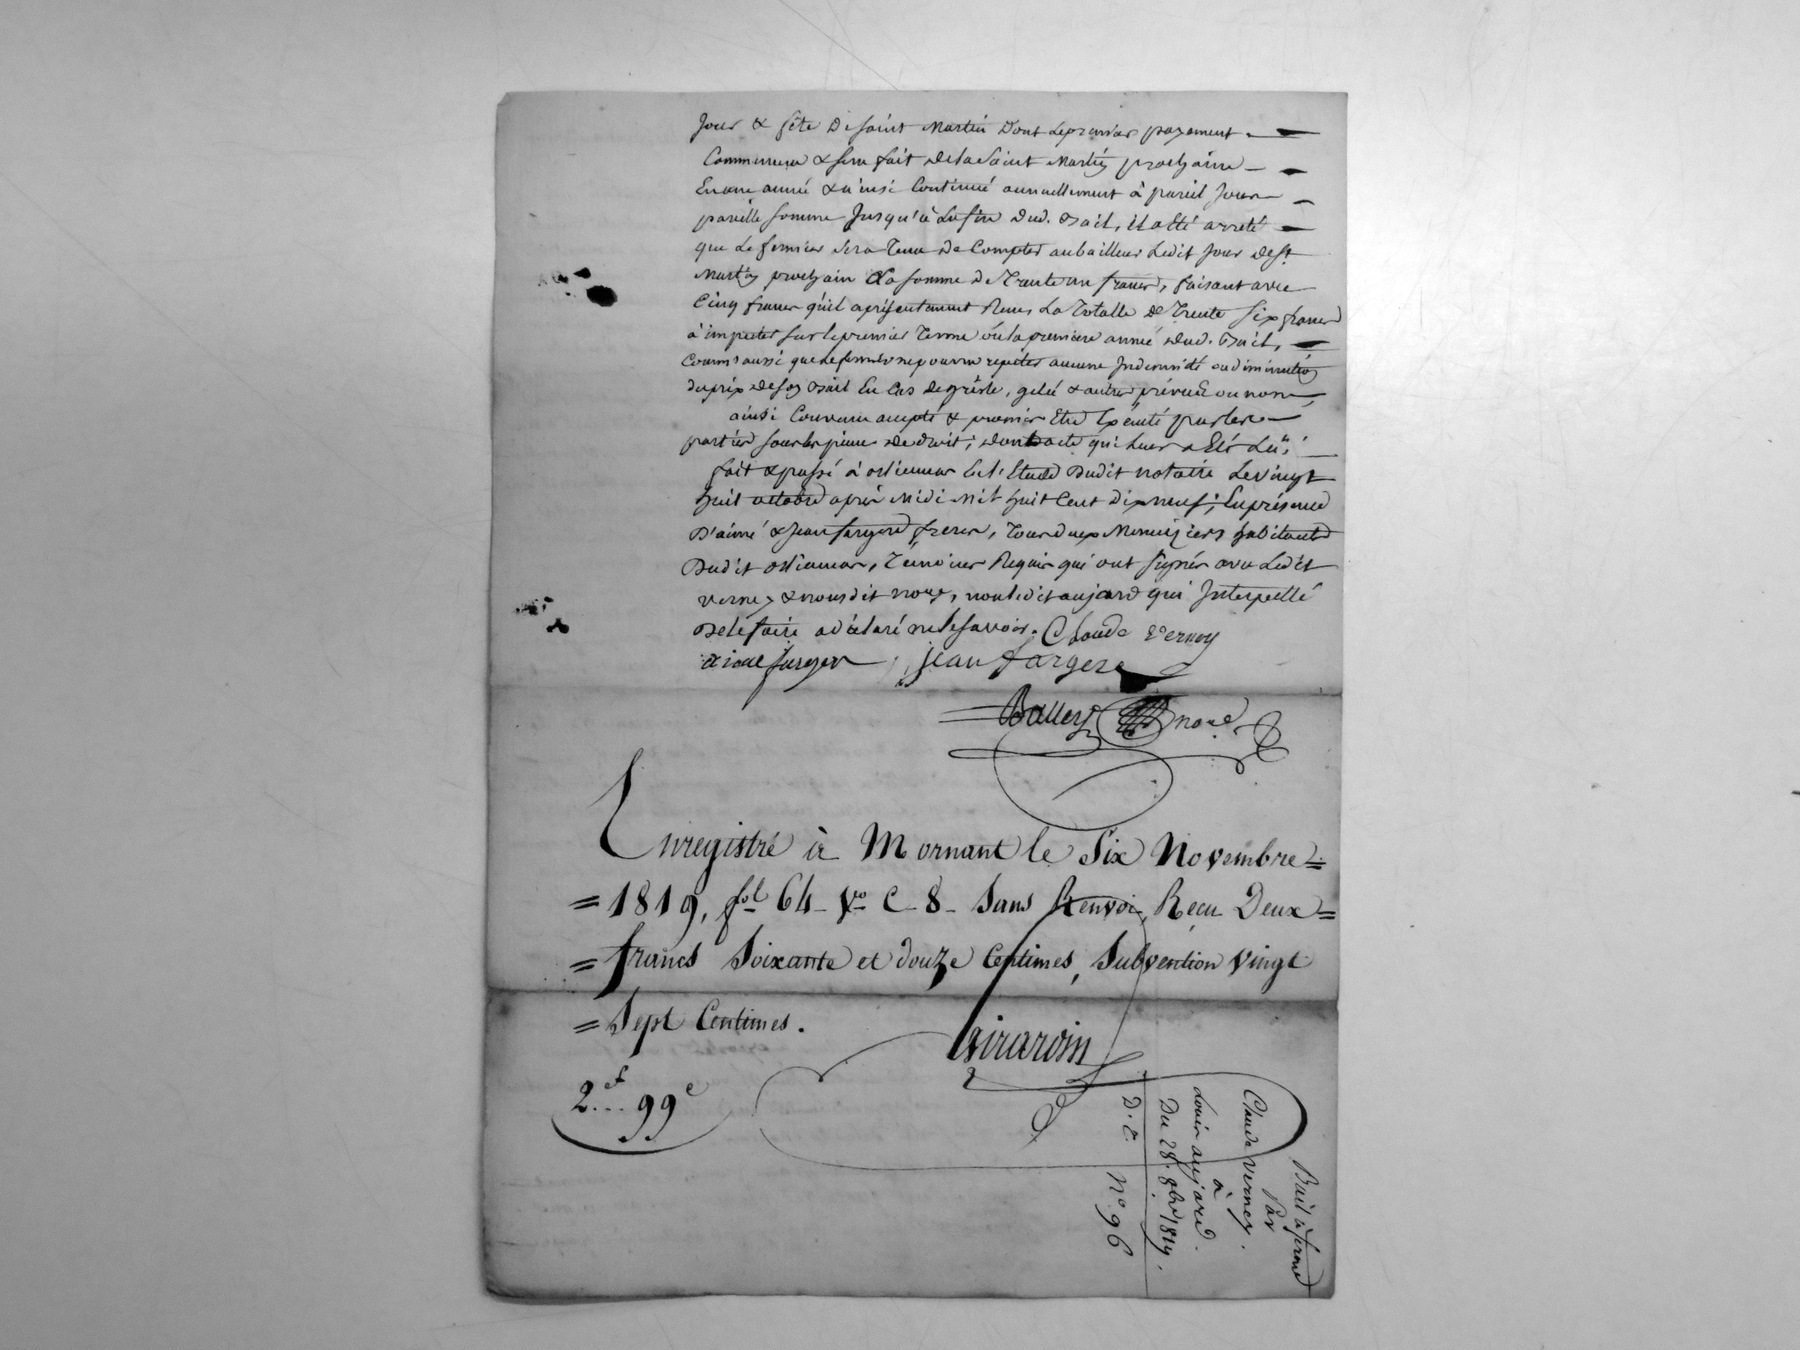 Jour & fête de saint Martin dont le premier payement
Commencera & sera fait de la saint Martin prochaine
En une année & ainsi Continué annuellement à pareil Jour
pareille somme Jusqu'à la fin dud. Bail, il a été arrété
que le fermier sera tenu de Compter au bailleur Ledit Jour de st
Martin prochain La somme de Trente un francs, faisant avec
Cinq francs qu'il a présentement Reçus La Totalle de Trente six francs
à imputer sur le premier terme où la première année dud. Bail,
Convenu aussi que le fermier ne pourra repeter aucune Indemnité ou diminution
du prix de son Bail En Cas de grêle, gelée & autres prévus ou non,
ainsi Convenu accepté & promis Etre Exécuté par les
parties sous les peines de droit; dont acte qui Leur a Eté Lu;
fait & passé à orliennas En l'Etude dudit notaire Le vingt
huit octobre après Midi Mil huit Cent dix neuf; En présence
d'aimé & Jean fargere frères, Tous deux Menuiziers habitants
Dudit orliennas, Témoins Requis qui ont signés avec Ledit
verney & nousdit nore, non ledit aujard qui Interpellé
De le faire a déclaré ne le savoir. Claude Verney
aimé fargere jean fargere
Ballley nore
Enregistré à Mornant le Six Novembre =
= 1819, fol 64 Vo C 8 Sans Renvoi, Reçu Deux =
= francs Soixante et douze Centimes, Subvention Vingt
= Sept Centimes.
Girardin
2f... 99c
Bail à ferme
Par
Claude Verney.
à
Louis aujard.
Du 28. 8bre 1819.
D. E. No. 96